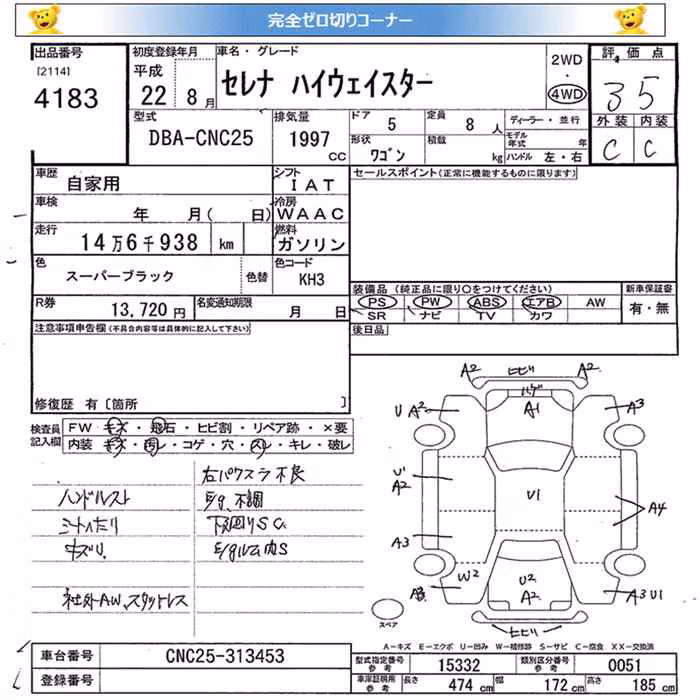 完全ゼロ切りコーナー
出品番号
[2114]
4183
初度登録年月
平成
22 8月
車名・グレード
セレナ ハイウェイスター
2WD
・
4WD
評価点
35
外装 内装
C C
型式
DBA-CNC25
排気量
1997
CC
ドア 5
定員 8 人
形状 ワゴン
積載 kg
ディーラー・並行
モデル年式 年
ハンドル 左・右
車歴 自家用
シフト IAT
車検 年 月( 日)
冷房 WAAC
走行 14万6千938 km
燃料 ガソリン
色 スーパーブラック 色替
色コード KH3
R券 13,720円
名変通知期限 月 日
セールスポイント(正常に機能するものに限ります)
装備品 (純正品に限り○をつけてください)
新車保証書
PS PW ABS エアB AW
SR ナビ TV カワ
有・無
後日品
注意事項申告欄(不具合内容等は具体的に記入して下さい)
修復歴 有[箇所 ]
検査員記入欄
FW キズ・飛石・ヒビ割・リペア跡・×要
内装 キズ・汚レ・コゲ・穴・スレ・キレ・破レ
右パワスラ不良
ハンドルスレ
E/g 不調
シートヘたり
下回りSC
E/gルーム内S
社外AW、スタットレス
A2 ヒビ A2
ハゲ
U A2 A1 A3
U1
A2 U1 A4
A3
W2 U2 A2
A3 U1
ヒビ
スペア
A-キズ E-エクボ U-凹み W-補修跡 S-サビ C-腐食 XX-交換済
車台番号 CNC25-313453
登録番号
型式指定番号 参考 15332
類別区分番号 参考 0051
車庫証明用 参考 長さ 474 cm 幅 172 cm 高さ 185 cm